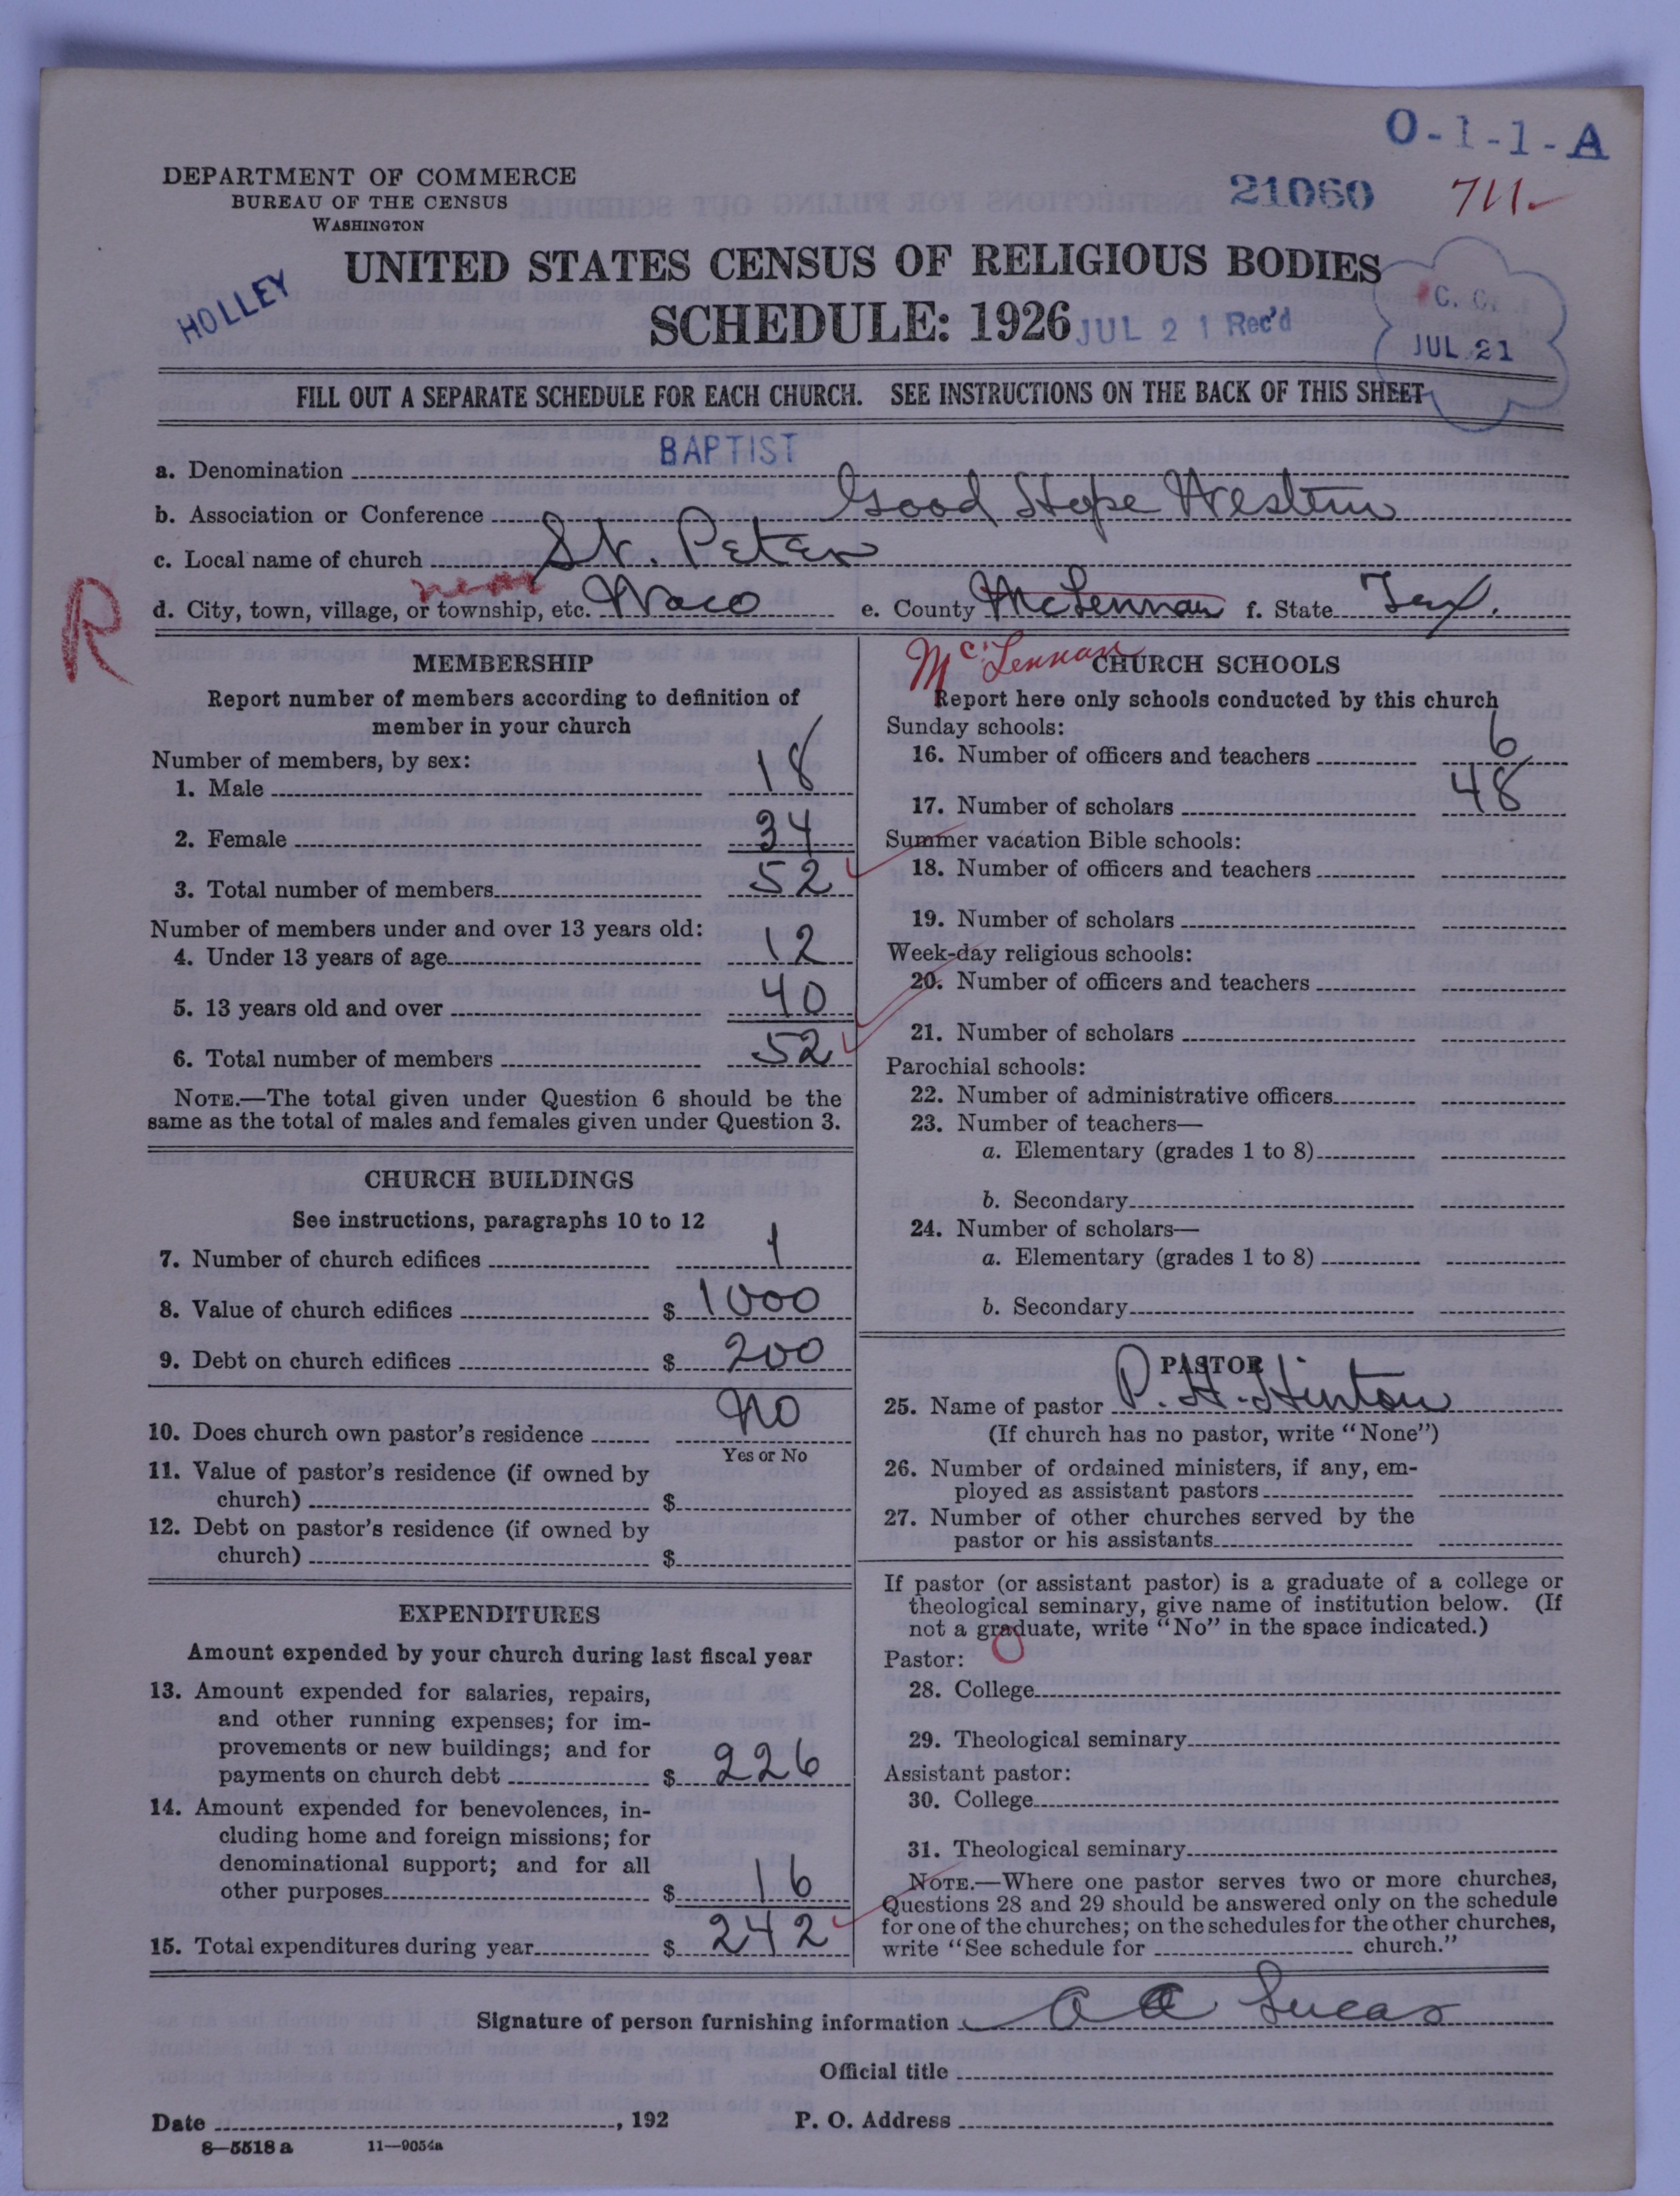 O-1-1-A
DEPARTMENT OF COMMERCE
BUREAU OF THE CENSUS
WASHINGTON
21060 711.
UNITED STATES CENSUS OF RELIGIOUS BODIES
HOLLEY
SCHEDULE: 1926 JUL 21 Rec'd
C. C.
JUL 21
FILL OUT A SEPARATE SCHEDULE FOR EACH CHURCH. SEE INSTRUCTIONS ON THE BACK OF THIS SHEET
a. Denomination BAPTIST
b. Association or Conference Good Hope Western
c. Local name of church St. Peter
R
near
d. City, town, village, or township, etc. Waco e. County McLennan f. State Tex.
McLennan
MEMBERSHIP
Report number of members according to definition of
member in your church
Number of members, by sex:
1. Male 18
2. Female 34
3. Total number of members 52
Number of members under and over 13 years old:
4. Under 13 years of age 12
5. 13 years old and over 40
6. Total number of members 52
NOTE.—The total given under Question 6 should be the
same as the total of males and females given under Question 3.
CHURCH BUILDINGS
See instructions, paragraphs 10 to 12
7. Number of church edifices 1
8. Value of church edifices $ 1000
9. Debt on church edifices $ 200
10. Does church own pastor's residence No
Yes or No
11. Value of pastor's residence (if owned by
church) $
12. Debt on pastor's residence (if owned by
church) $
EXPENDITURES
Amount expended by your church during last fiscal year
13. Amount expended for salaries, repairs,
and other running expenses; for im-
provements or new buildings; and for
payments on church debt $ 226
14. Amount expended for benevolences, in-
cluding home and foreign missions; for
denominational support; and for all
other purposes $ 16
15. Total expenditures during year $ 242
CHURCH SCHOOLS
Report here only schools conducted by this church
Sunday schools:
16. Number of officers and teachers 6
17. Number of scholars 48
Summer vacation Bible schools:
18. Number of officers and teachers
19. Number of scholars
Week-day religious schools:
20. Number of officers and teachers
21. Number of scholars
Parochial schools:
22. Number of administrative officers
23. Number of teachers—
a. Elementary (grades 1 to 8)
b. Secondary
24. Number of scholars—
a. Elementary (grades 1 to 8)
b. Secondary
PASTOR
25. Name of pastor P. H. Hinton
(If church has no pastor, write "None")
26. Number of ordained ministers, if any, em-
ployed as assistant pastors
27. Number of other churches served by the
pastor or his assistants
If pastor (or assistant pastor) is a graduate of a college or
theological seminary, give name of institution below. (If
not a graduate, write "No" in the space indicated.)
Pastor:
28. College
29. Theological seminary
Assistant pastor:
30. College
31. Theological seminary
NOTE.—Where one pastor serves two or more churches,
Questions 28 and 29 should be answered only on the schedule
for one of the churches; on the schedules for the other churches,
write "See schedule for church."
Signature of person furnishing information A A Lucas
Official title
Date , 192 P. O. Address
8—5518 a 11—9054a